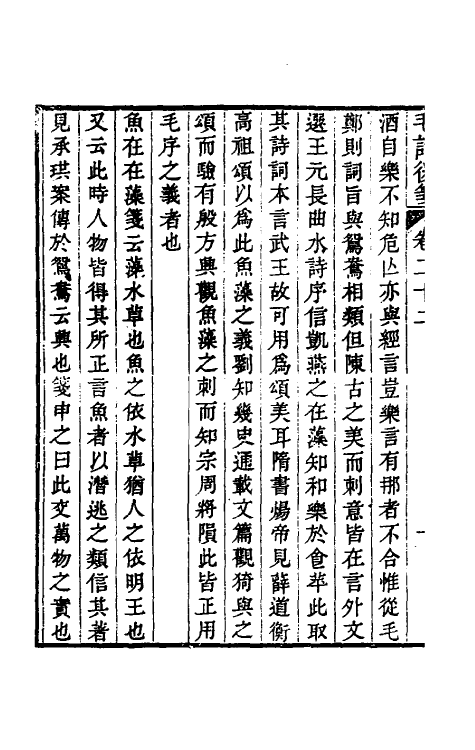 毛詩後箋 卷二十二 一
酒自樂不知危亾亦與經言豈樂言有那者不合惟從毛
鄭則詞旨與鴛鴦相類但陳古之美而刺意皆在言外文
選王元長曲水詩序信凱燕之在藻知和樂於食苹此取
其詩詞本言武王故可用爲頌美耳隋書煬帝見薛道衡
高祖頌以爲此魚藻之義劉知幾史通載文篇觀猗與之
頌而驗有殷方興觀魚藻之刺而知宗周將隕此皆正用
毛序之義者也
魚在在藻箋云藻水草也魚之依水草猶人之依明王也
又云此時人物皆得其所正言魚者以潛逃之類信其著
見承珙案傳於鴛鴦云興也箋申之曰此交萬物之實也